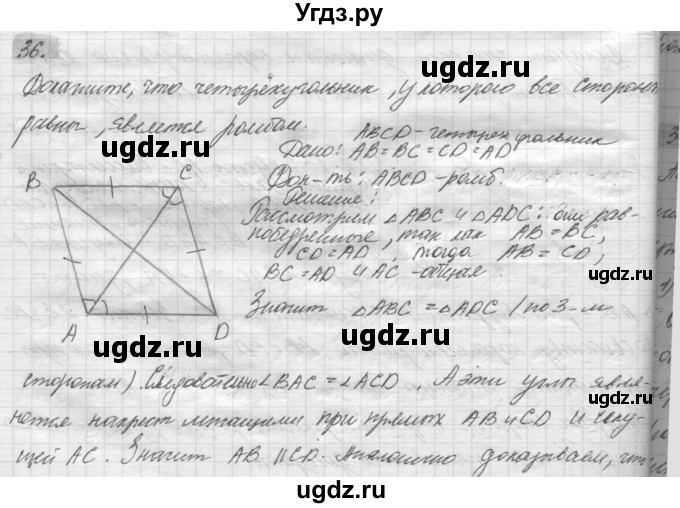 Угдз.ру
36.
Докажите, что четырёхугольник, у которого все стороны
равны, является ромбом.
ABCD - четырехугольник
Дано: AB = BC = CD = AD
Док-ть: ABCD - ромб.
Решение:
Рассмотрим △ABC и △ADC: они рав-
нобедренные, так как AB = BC,
CD = AD, тогда AB = CD,
BC = AD и AC - общая.
Значит △ABC = △ADC (по 3-м
сторонам). Следовательно ∠BAC = ∠ACD. А эти углы явля-
ются накрест лежащими при прямых AB и CD и секу-
щей AC. Значит AB || CD. Аналогично доказываем, что
B
C
A
D
ugdz.ru
ugdz.ru
ugdz.ru
ugdz.ru
ugdz.ru
ugdz.ru
ugdz.ru
ugdz.ru